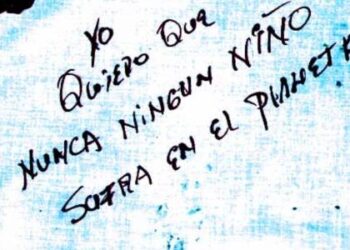 YO
QUIERO QUE
NUNCA NINGUN NIÑO
SUFRA EN EL PLANETA